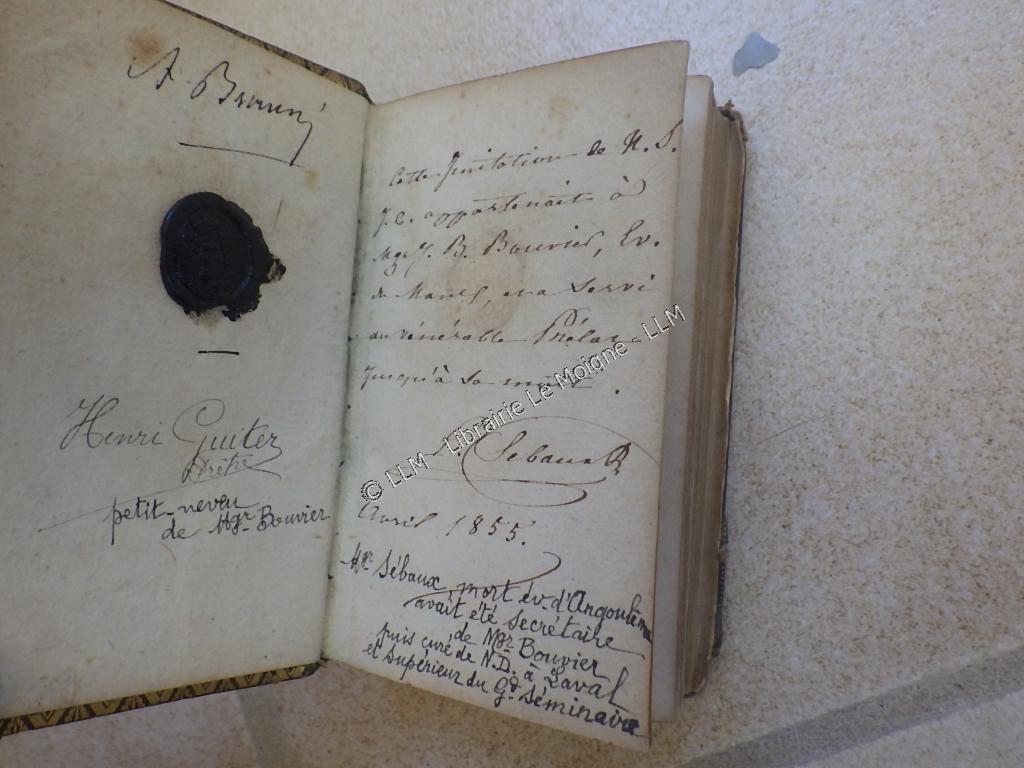 A. Brunni
Henri Guiter
Prêtre
petit-neveu
de Mgr Bouvier
Cette Imitation de N. S.
J. C. appartenait à
Mgr J. B. Bouvier, Ev.
du Mans, et a servi
au vénérable Prélat
jusqu'à sa mort.
Sebaux
Avril 1855.
Mgr Sébaux, mort ev. d'Angoulême
avait été secrétaire
de Mgr Bouvier
puis curé de N.D. à Laval
et Supérieur du Gd Séminaire
© LLM - Librairie Le Moigne - LLM